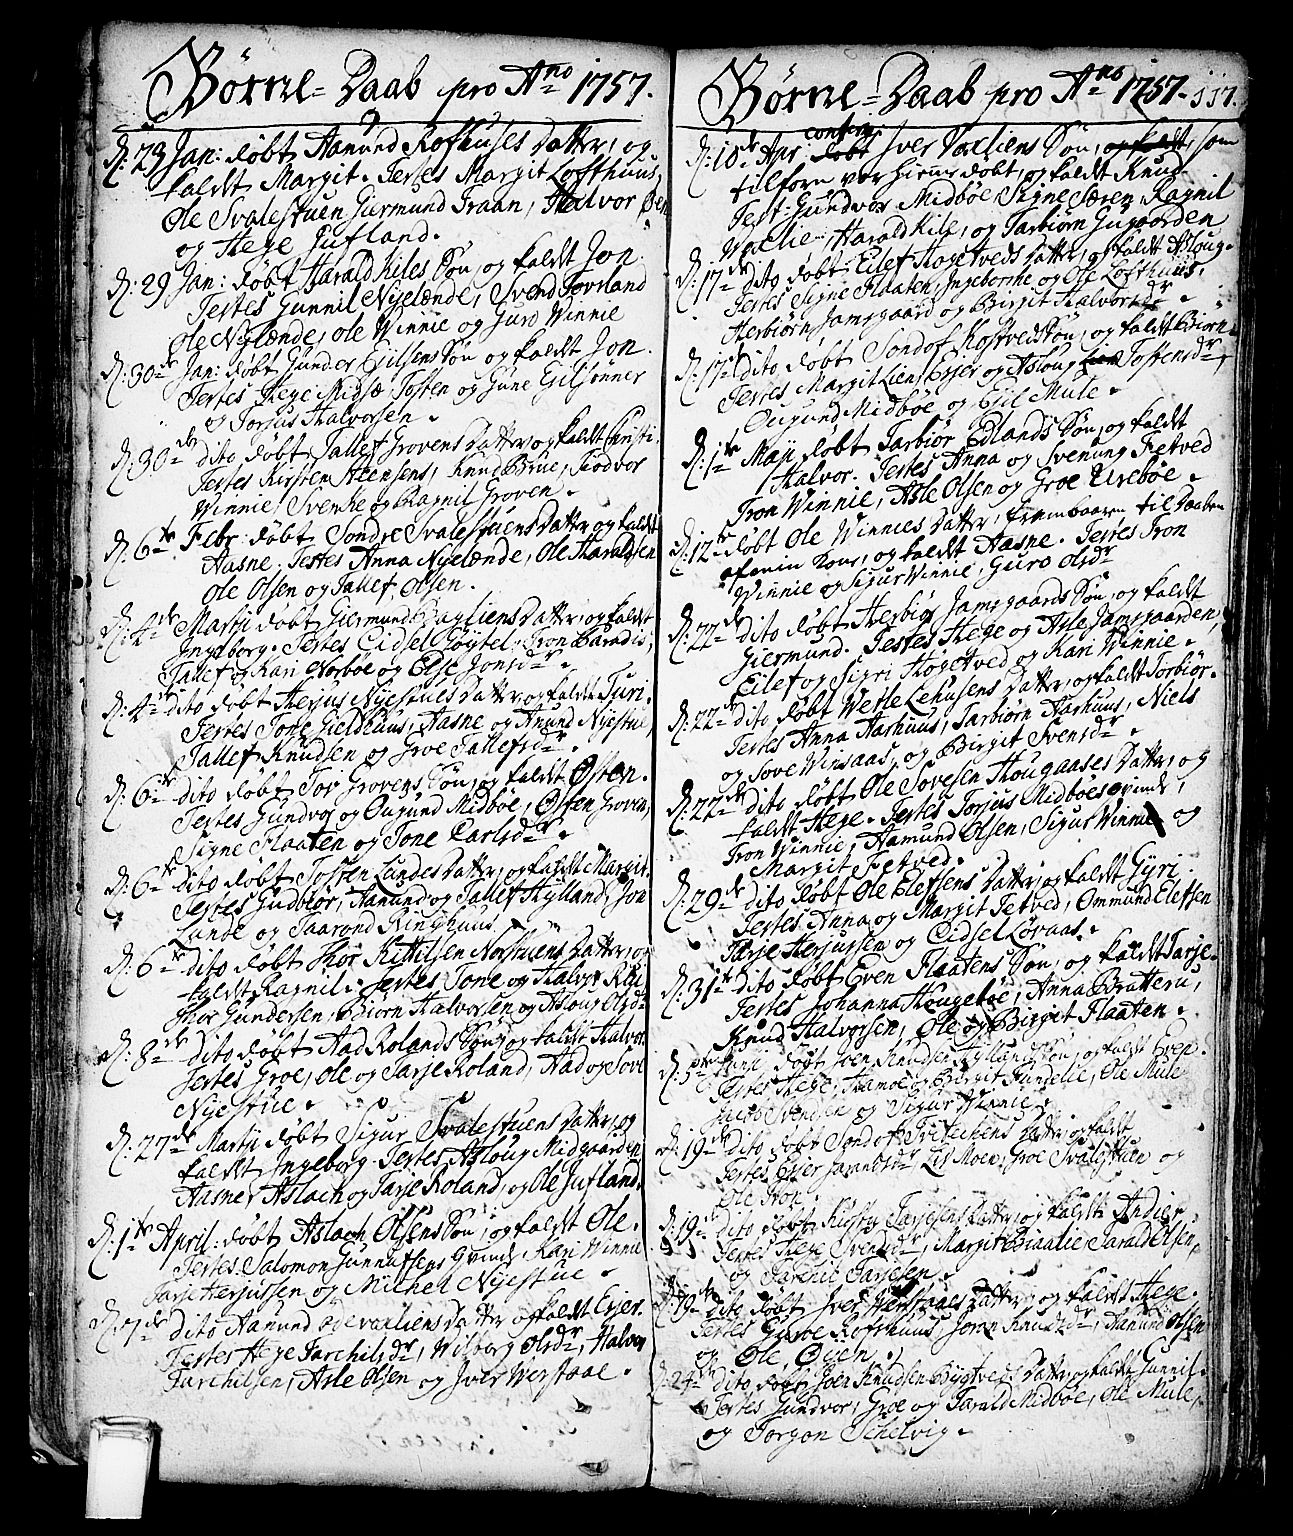 Børne-Daab pro Ano 1757.
D: 23 Jan: døbt Aamund Rofhuses Datter, og
kaldt Margit. Testes Margit Lofthuus,
Ole Svalestuen Giermund Traan, Halvor
og Hege Jufland.
D: 29 Jan: døbt Harald Kiles Søn, og kaldt Jon.
Testes Gunnil Nyelænde, Svend Jovsland
Ole Nyelænde, Ole Winnie og Guro Winnie
D: 30de Jan: døbt Gunder Eiilsens Søn og kaldt Jon.
Testes Hege Midsæ, Tosten og Gune Eiilsønner
og Torjus Halvorsen.
D: 30de dito døbt Tallef Grovens Datter, og kaldt
Testes Kirsten Steensens, Knud Brue, Tiodvor
Winnie, Svenke og Ragnil Groven.
D: 6te Febr: døbt Sondre Svalestuens Datter og kaldt
Aasne. Testes Anna Nyelænde, Ole Haraldsen
Ole Olsen og Tallef Olsen.
D: 4de Martij døbt Giermund Dagliens Datter, og kaldt
Ingeborg. Testes Eidsel Tron
Tallef og Kari Norboe og Else Jonsdr.
D: 4de dito døbt Herjus Nyestues Datter, og kaldt Turi.
Testes Tone Aasne og Anund Nyestue,
Tallef Knudsen og Groe Tallefsdr.
D: 6te dito døbt Tor Grovens Søn, og kaldt Østen.
Testes Gundvor og Ougund Midbøe, Østen Groven,
Signe Flaaten og Tone Carlsdr.
D: 6te dito døbt Tosten Lundes Datter, og kaldt Margit.
Testes Gudbiør, Aamund og Tallef Hylland, Jon
Lunde og Taarand Ringhuus
D: 6te dito døbt Thor Kittilsen Norstuens Datter, og
kaldt Ragnil. Testes Tone og Halvor
Thor Gundersen, Biørn Halvorsen og Asloug Olsdr.
D: 8de dito døbt Aad Rolands Søn, og kaldt Halvor.
Testes Groe, Ole og Tarje Roland, Aad og Sove
Nyestue.
D: 27de Martij døbt Sigur Svalestuens Datter, og
kaldt Ingeborg. Testes Asloug Midgaarden
Aasne, Aslach og Tarje Roland, og Ole Jufland.
D: 1te April: døbt Aslach Olsens Søn, og kaldt Ole.
Testes Salomon Gunnulfsens Qvinde, Kari Winnie
Tarje Herjussen og Michel Nyestue.
D: 7de dito Aamund Datter og kaldt Esjer.
Testes Hege Tarchilsdr, Wilborg Olsdr, Halvor
Tarchilsen, Asle Olsen og Jver Werstaae.
Børne-Daab pro Ano 1757. 117.
D: 10de Apr døbt Jver Væliens Søn, og kaldt, som
tilforn var hiemme døbt, og kaldt Knud
Test: Gundvor Midbøe, Signe Særen Ragnil
Wælie, Harald Kile, og Tarbiørn
D: 17de dito døbt Eilef Høgetveds Datter, og kaldt Asloug.
Testes Signe Flaaten, Ingeborne og Ole Lofthuus,
Herbiørn Jamsgaard og Birgit Halvorsdr.
D: 17de dito døbt Søn, og kaldt Biørn.
Testes Margit Liens Esjer og Asloug Tostensdr,
Ougund Midbøe og Egil Mule.
D: 1te Maji døbt Tarbiør Edlands Søn, og kaldt
Halvor. Testes Anna og Svenung Fetved
Tron Winnie, Asle Olsen og Groe Urebøe.
D: 12te døbt Ole Winnies Datter, frembaaren til Daaben
af min Kone, og kaldt Aasne. Testes Tron
Winnie og Sigur Winnie, Guro Olsdr
D: 22de dito døbt Herbiør Jamsgaards Søn, og kaldt
Giermund. Testes Hege og Asle Jamsgaarden,
Eilef og Sigri Høgetved og Kari Winnie.
D: 22de dito døbt Wetle Lehusens Datter, og kaldt Torbiør.
Testes Anna Aarhuus, Tarbiørn Aarhuus, Niels
og Sove Winsaas, og Birgit Svensdr.
D: 22de dito døbt Ole Sovesen Hougaases Datter, og
kaldt Hege. Testes Torjuus Midboes qvinde,
Tron Winnie, Aamund Olsen, Sigur Winnie og
Margit Fetved.
D: 29de dito døbt Ole Elefsens Datter, og kaldt Gyri.
Testes Anna og Margit Fetved, Ommund Elefsen
Tarje Herjussen og Eidsel Løraas.
D: 31te dito døbt Even Flaatens Søn, og kaldt Tarje.
Testes Johanna Hougebøe, Anna Bratteru,
Knud Halvorsen, Ole og Birget Flaaten.
D: 5te Junij døbt Joen Knudsen Hyllands Søn, og kaldt Even.
Testes Hege, og Birgit Ole Mule
Svensen og Sigur Winnie.
D: 19de dito døbt Sondof Datter, og kaldt
Testes Esjer Liv Moen, Groe Svalestuen og
Ole
D: 19de dito døbt Tarjesens Datter, og kaldt
Testes Hege Svensdr, Margit Biaalie, Tarald Olsen,
og Tarchil Tarjesen.
D: 19de dito døbt Jver Werstaaes Datter, og kaldt Hege.
Testes Guroe Rofthuus, Jøran Knudsdr, Aanund Olsen
og Ole Øijen.
D: 24de dito døbt Joen Knudsen Bygtveds Datter, og kaldt Gunnil.
Testes Gundvor, Groe og Tarald Midbøe, Ole Mule,
og Torgon Schelvig.